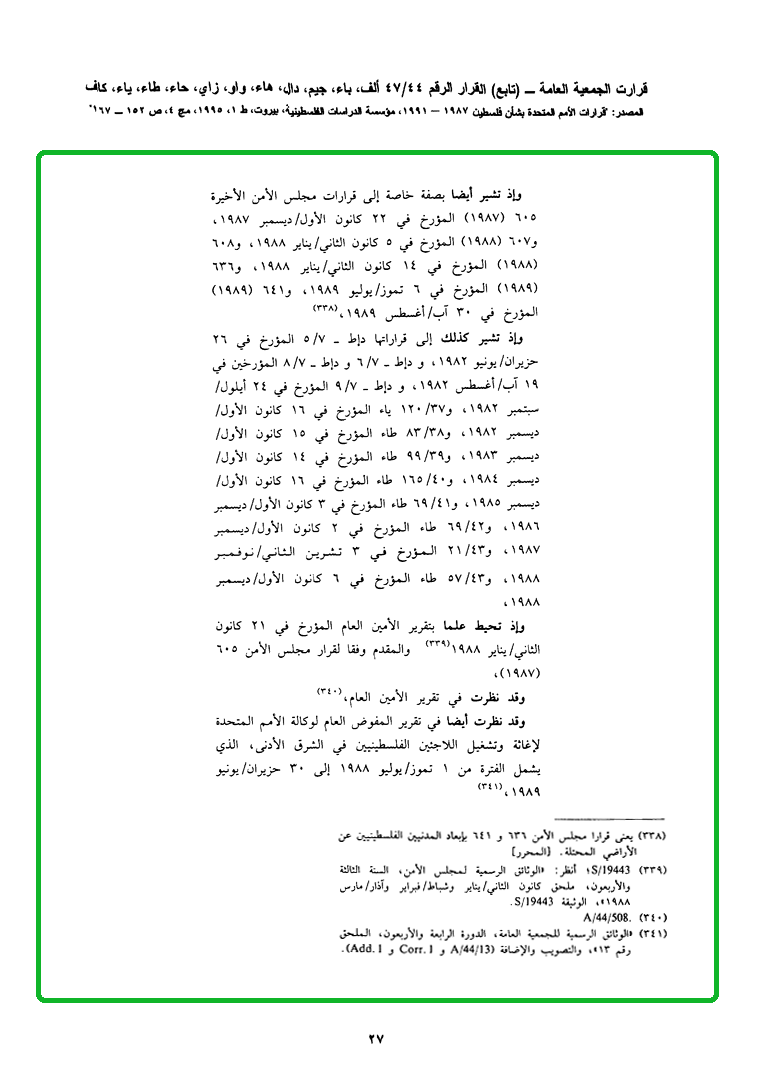 قرارت الجمعية العامة ــ (تابع) القرار الرقم ٤٧/٤٤ ألف، باء، جيم، دال، هاء، واو، زاي، حاء، طاء، ياء، كاف
المصدر: "قرارات الأمم المتحدة بشأن فلسطين ١٩٨٧ – ١٩٩١، مؤسسة الدراسات الفلسطينية، بيروت، ط ١، ١٩٩٥، مج ٤، ص ١٥٢ ــ ١٦٧"
وإذ تشير أيضا بصفة خاصة إلى قرارات مجلس الأمن الأخيرة
٦٠٥ (١٩٨٧) المؤرخ في ٢٢ كانون الأول/ديسمبر ١٩٨٧،
و٦٠٧ (١٩٨٨) المؤرخ في ٥ كانون الثاني/يناير ١٩٨٨، و٦٠٨
(١٩٨٨) المؤرخ في ١٤ كانون الثاني/يناير ١٩٨٨، و٦٣٦
(١٩٨٩) المؤرخ في ٦ تموز/يوليو ١٩٨٩، و٦٤١ (١٩٨٩)
المؤرخ في ٣٠ آب/أغسطس ١٩٨٩،(٣٣٨)
وإذ تشير كذلك إلى قراراتها دإط ـ ٥/٧ المؤرخ في ٢٦
حزيران/يونيو ١٩٨٢، و دإط ـ ٦/٧ و دإط ـ ٨/٧ المؤرخين في
١٩ آب/أغسطس ١٩٨٢، و دإط ـ ٩/٧ المؤرخ في ٢٤ أيلول/
سبتمبر ١٩٨٢، و١٢٠/٣٧ ياء المؤرخ في ١٦ كانون الأول/
ديسمبر ١٩٨٢، و٨٣/٣٨ طاء المؤرخ في ١٥ كانون الأول/
ديسمبر ١٩٨٣، و٩٩/٣٩ طاء المؤرخ في ١٤ كانون الأول/
ديسمبر ١٩٨٤، و١٦٥/٤٠ طاء المؤرخ في ١٦ كانون الأول/
ديسمبر ١٩٨٥، و٦٩/٤١ طاء المؤرخ في ٣ كانون الأول/ديسمبر
١٩٨٦، و٦٩/٤٢ طاء المؤرخ في ٢ كانون الأول/ديسمبر
١٩٨٧، و٢١/٤٣ المؤرخ في ٣ تشرين الثاني/نوفمبر
١٩٨٨، و٥٧/٤٣ طاء المؤرخ في ٦ كانون الأول/ديسمبر
١٩٨٨،
وإذ تحيط علما بتقرير الأمين العام المؤرخ في ٢١ كانون
الثاني/يناير ١٩٨٨(٣٣٩) والمقدم وفقا لقرار مجلس الأمن ٦٠٥
(١٩٨٧)،
وقد نظرت في تقرير الأمين العام،(٣٤٠)
وقد نظرت أيضا في تقرير المفوض العام لوكالة الأمم المتحدة
لإغاثة وتشغيل اللاجئين الفلسطينيين في الشرق الأدنى، الذي
يشمل الفترة من ١ تموز/يوليو ١٩٨٨ إلى ٣٠ حزيران/يونيو
١٩٨٩،(٣٤١)
(٣٣٨) يعني قرارا مجلس الأمن ٦٣٦ و ٦٤١ بإبعاد المدنيين الفلسطينيين عن
الأراضي المحتلة. [المحرر]
(٣٣٩) S/19443؛ أنظر: «الوثائق الرسمية لمجلس الأمن، السنة الثالثة
والأربعون، ملحق كانون الثاني/يناير وشباط/فبراير وآذار/مارس
١٩٨٨»، الوثيقة S/19443.
(٣٤٠) A/44/508.
(٣٤١) «الوثائق الرسمية للجمعية العامة، الدورة الرابعة والأربعون، الملحق
رقم ١٣»، والتصويب والإضافة (A/44/13 و Corr.1 و Add.1).
٢٧